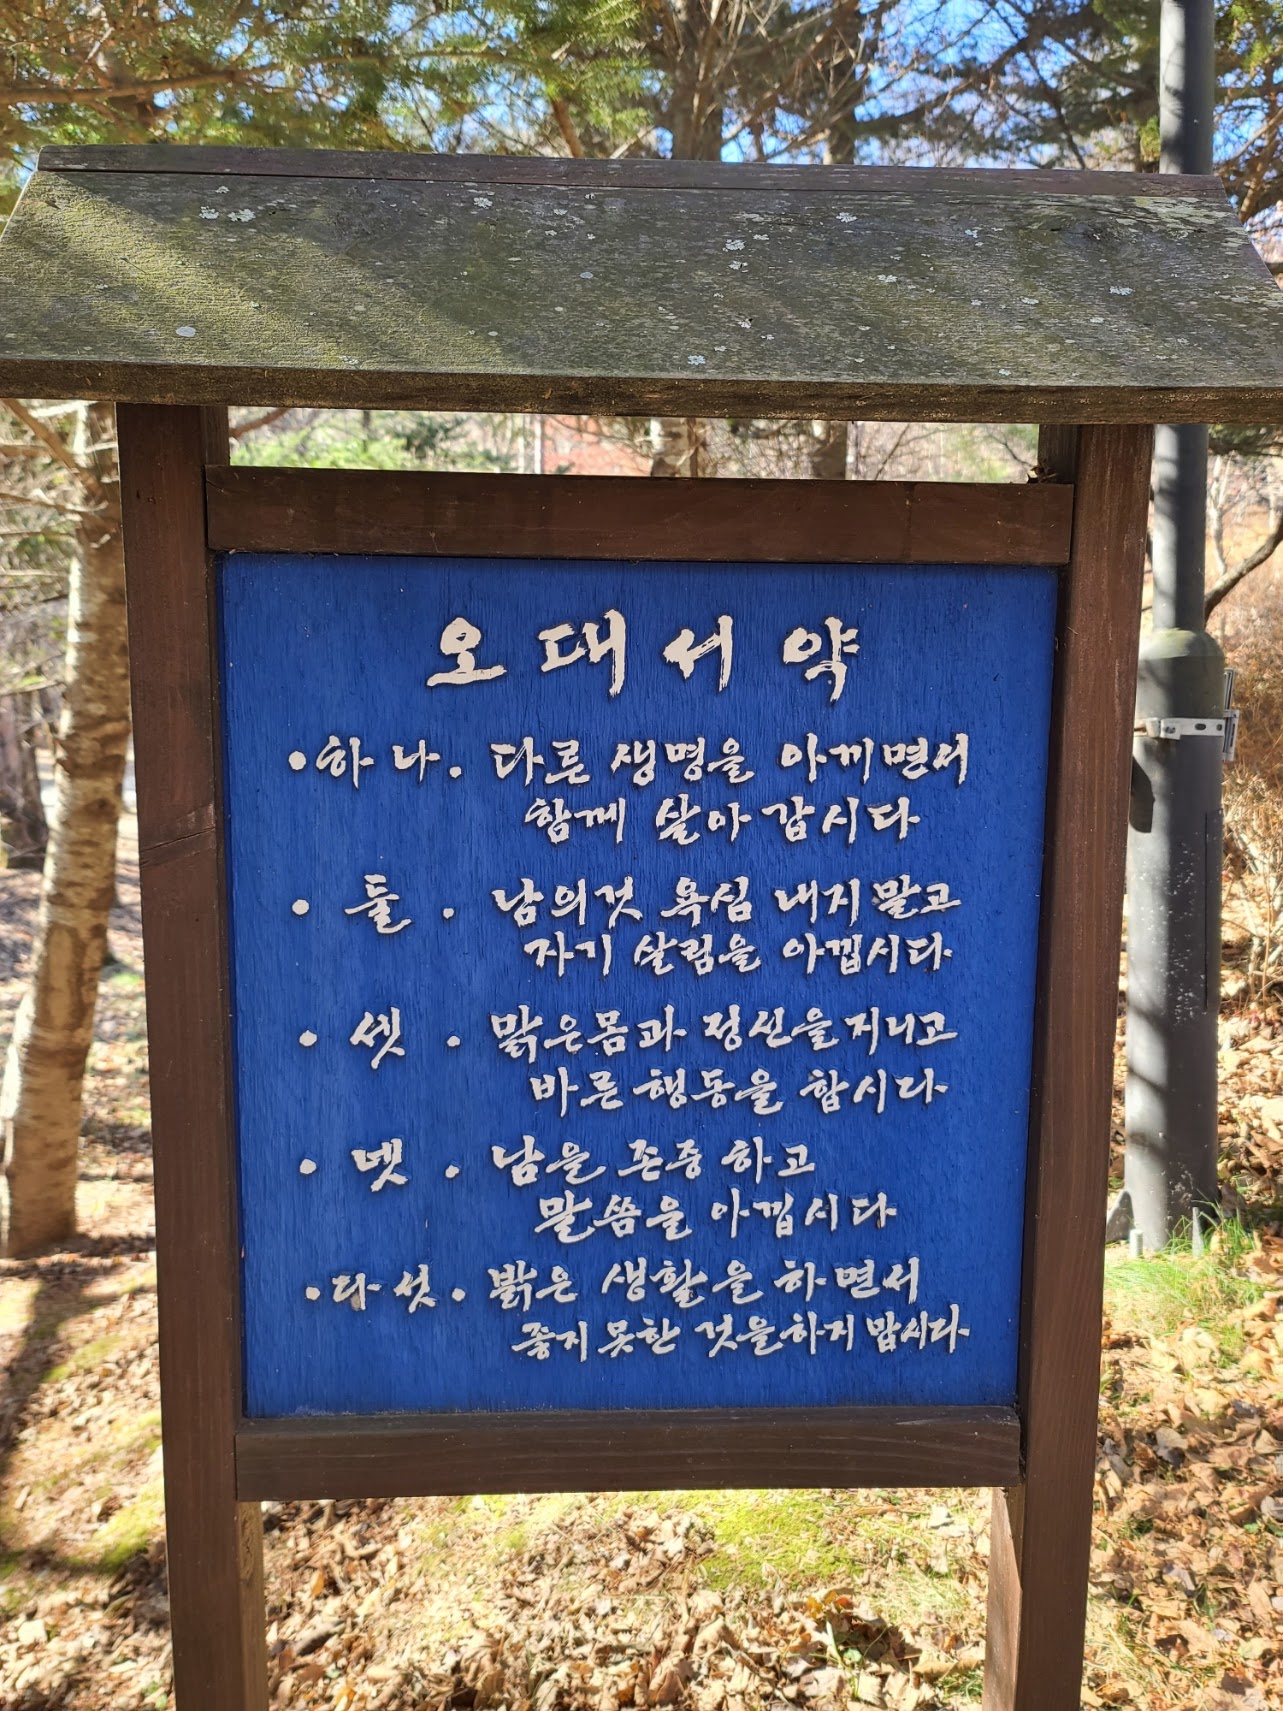 오대서약
• 하나. 다른 생명을 아끼면서
함께 살아 갑시다
• 둘. 남의것 욕심 내지말고
자기 살림을 아낍시다
• 셋. 맑은몸과 정신을지니고
바른행동을 합시다
• 넷. 남을 존중하고
말씀을 아낍시다
• 다섯. 밝은 생활을 하면서
좋지못한 것을하지맙시다